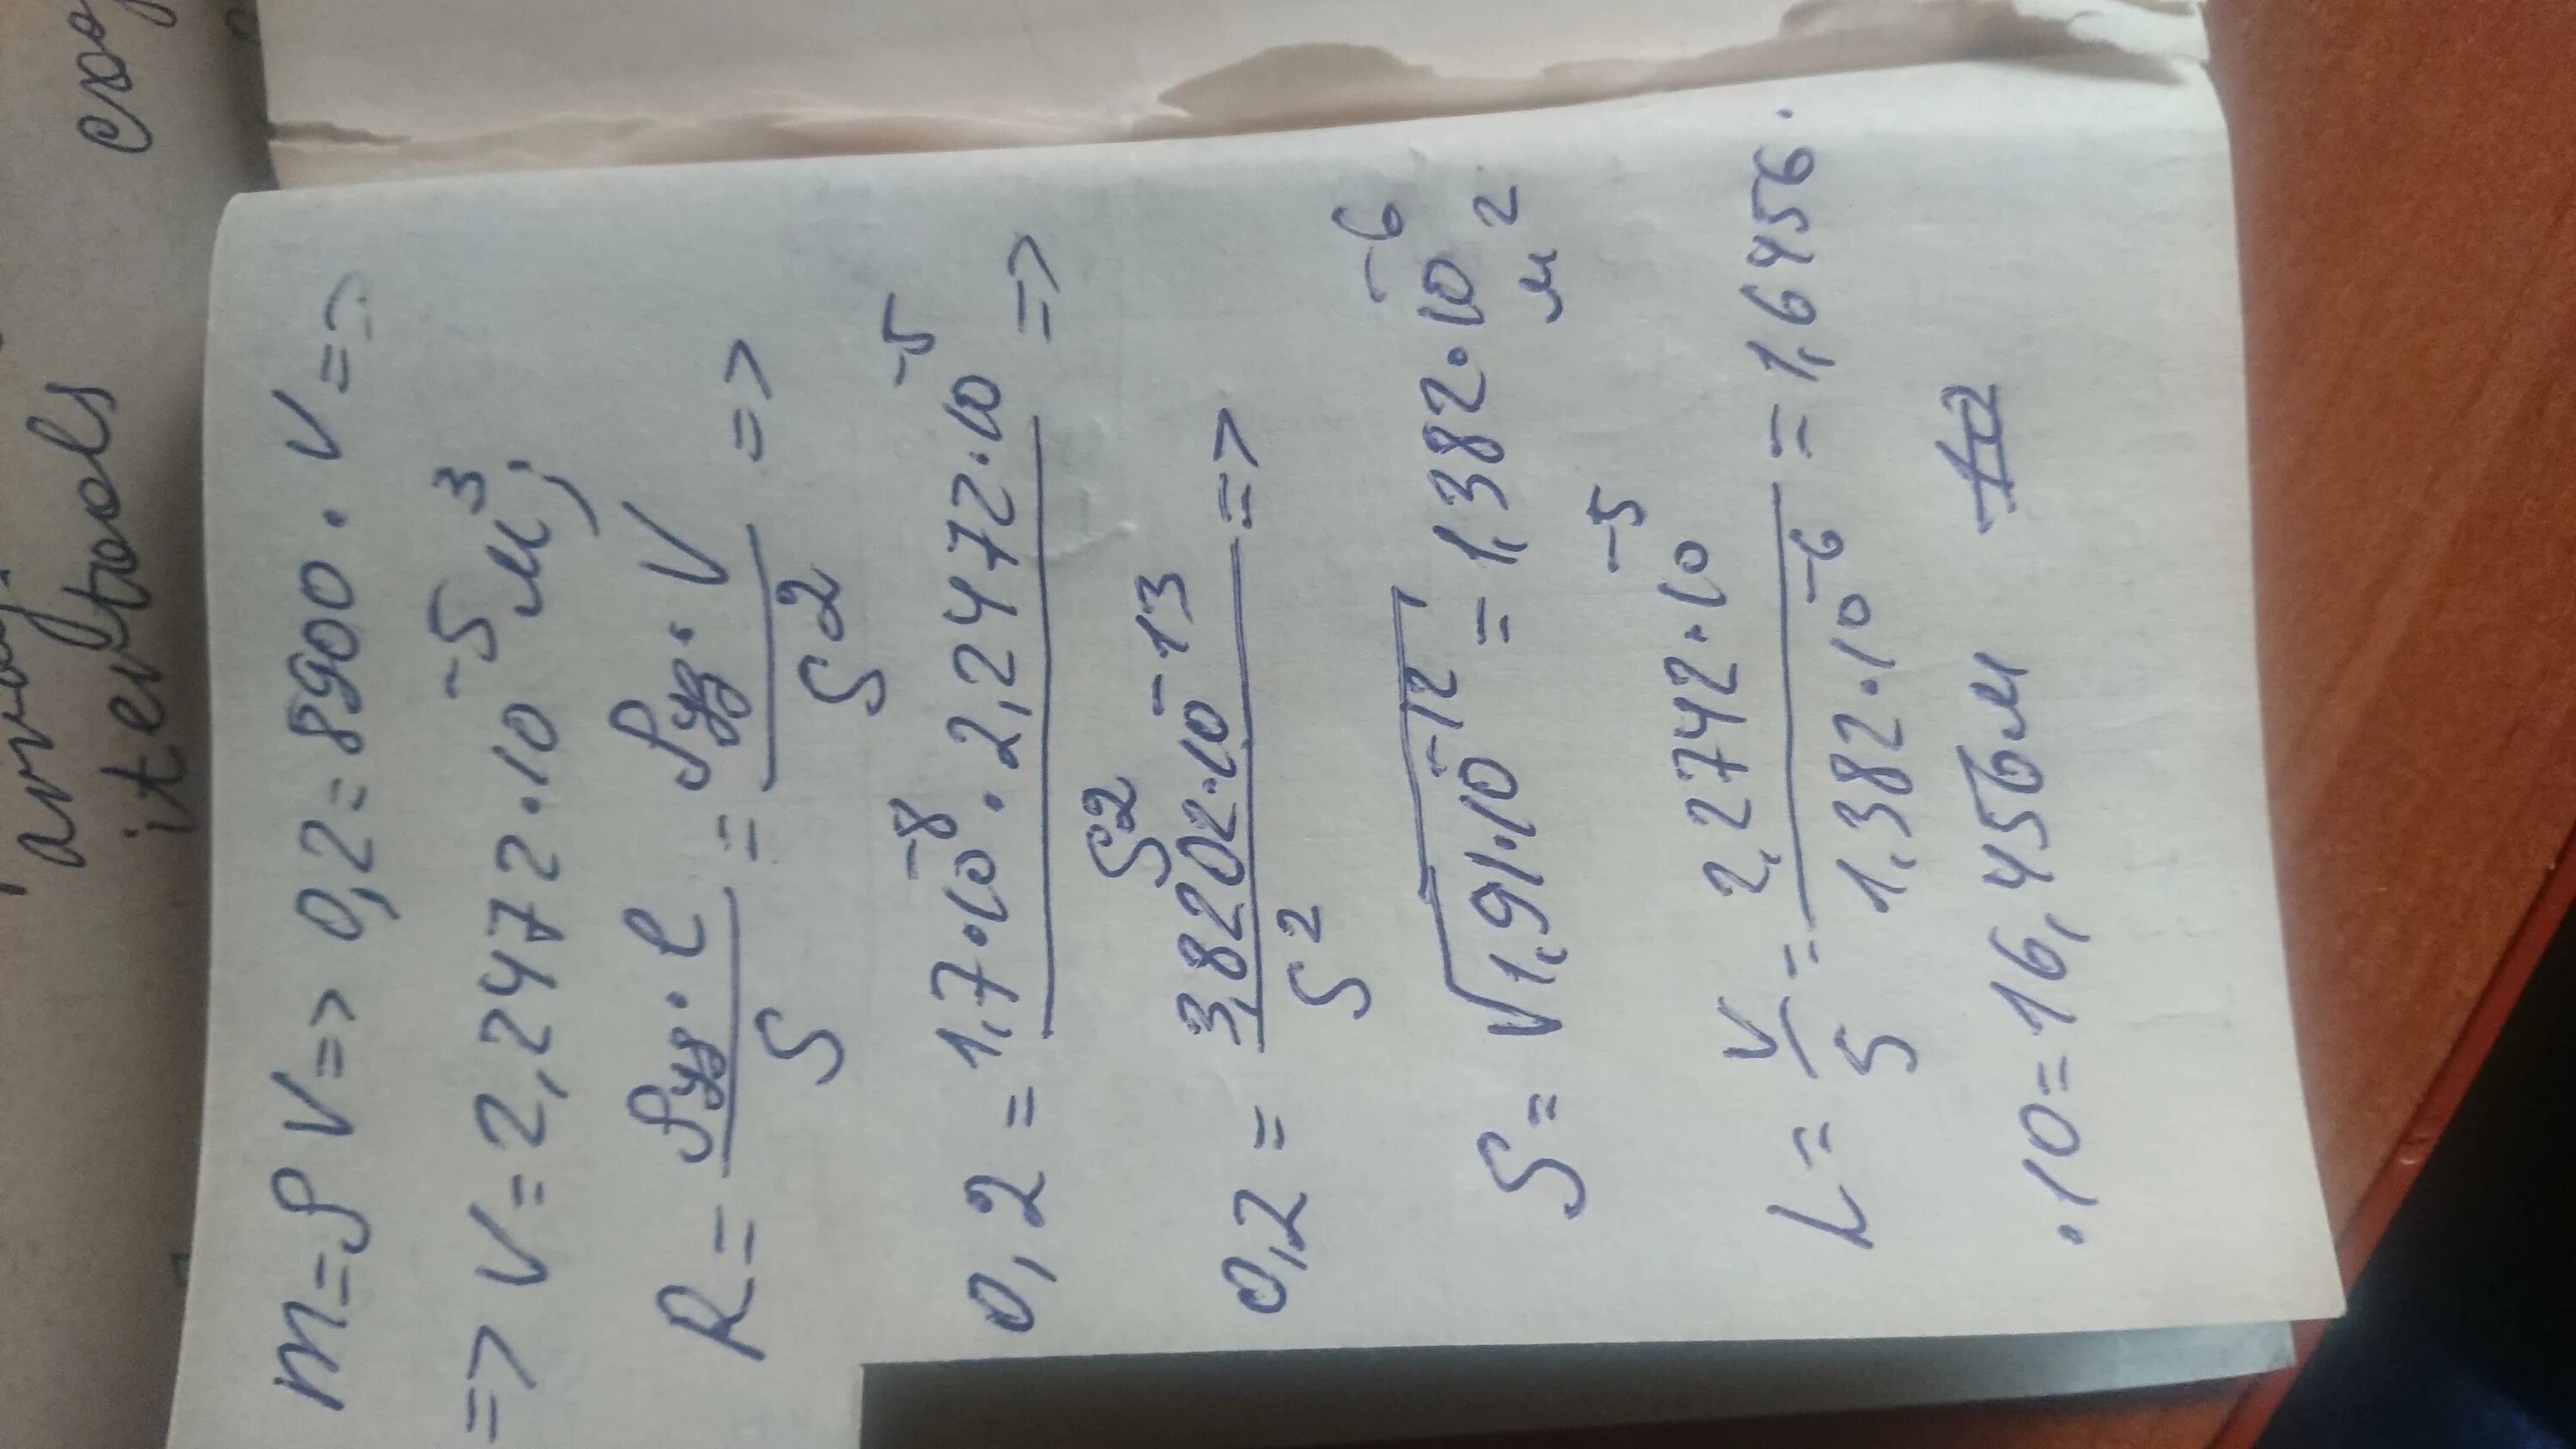 m=ρV=> 0,2=8900·V=>
=> V=2,2472·10⁻⁵м³;
R= ρуд·l/S = ρуд·V/S² =>
0,2= 1,7·10⁻⁸·2,2472·10⁻⁵/S² =>
0,2= 3,8202·10⁻¹³/S² =>
S= √1,91·10⁻¹² = 1,382·10⁻⁶ м²
L= V/S = 2,2742·10⁻⁵/1,382·10⁻⁶ = 1,6456·
·10=16,456м
itextools